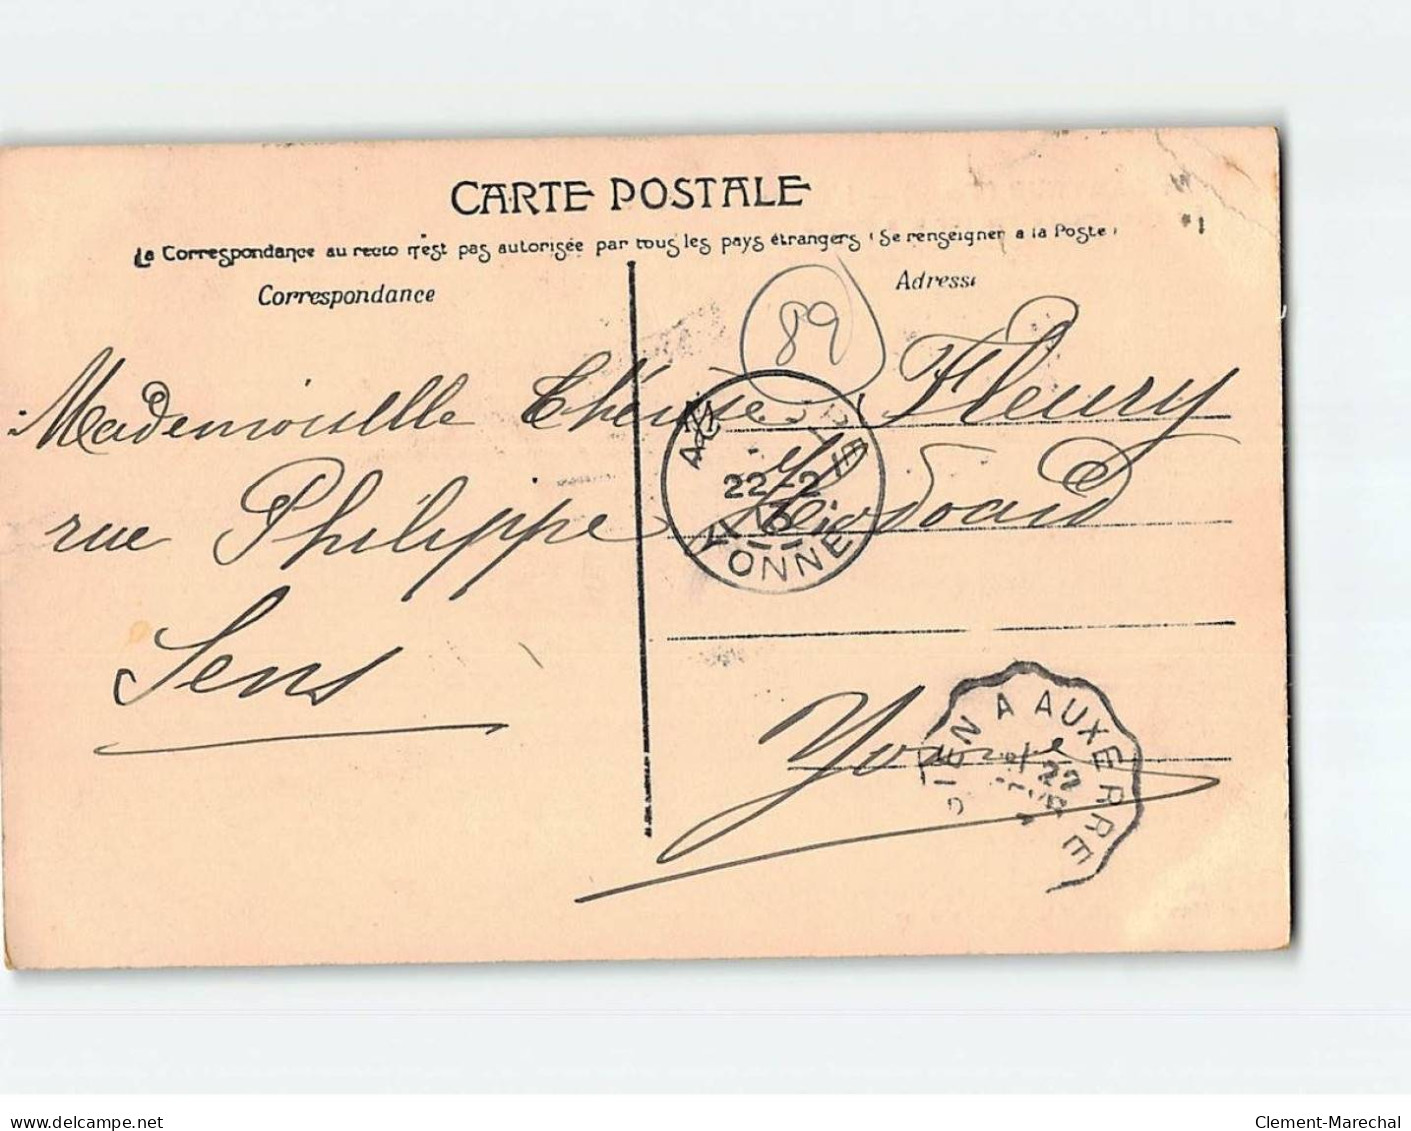 CARTE POSTALE
La Correspondance au recto n'est pas autorisée par tous les pays étrangers (Se renseigner à la Poste)
Correspondance
Adresse
89
Mademoiselle Thérèse Fleury
rue Philippe
Sens
Yonne
22-2
YONNE
GIEN A AUXERRE
22
www.delcampe.net
Clement-Marechal